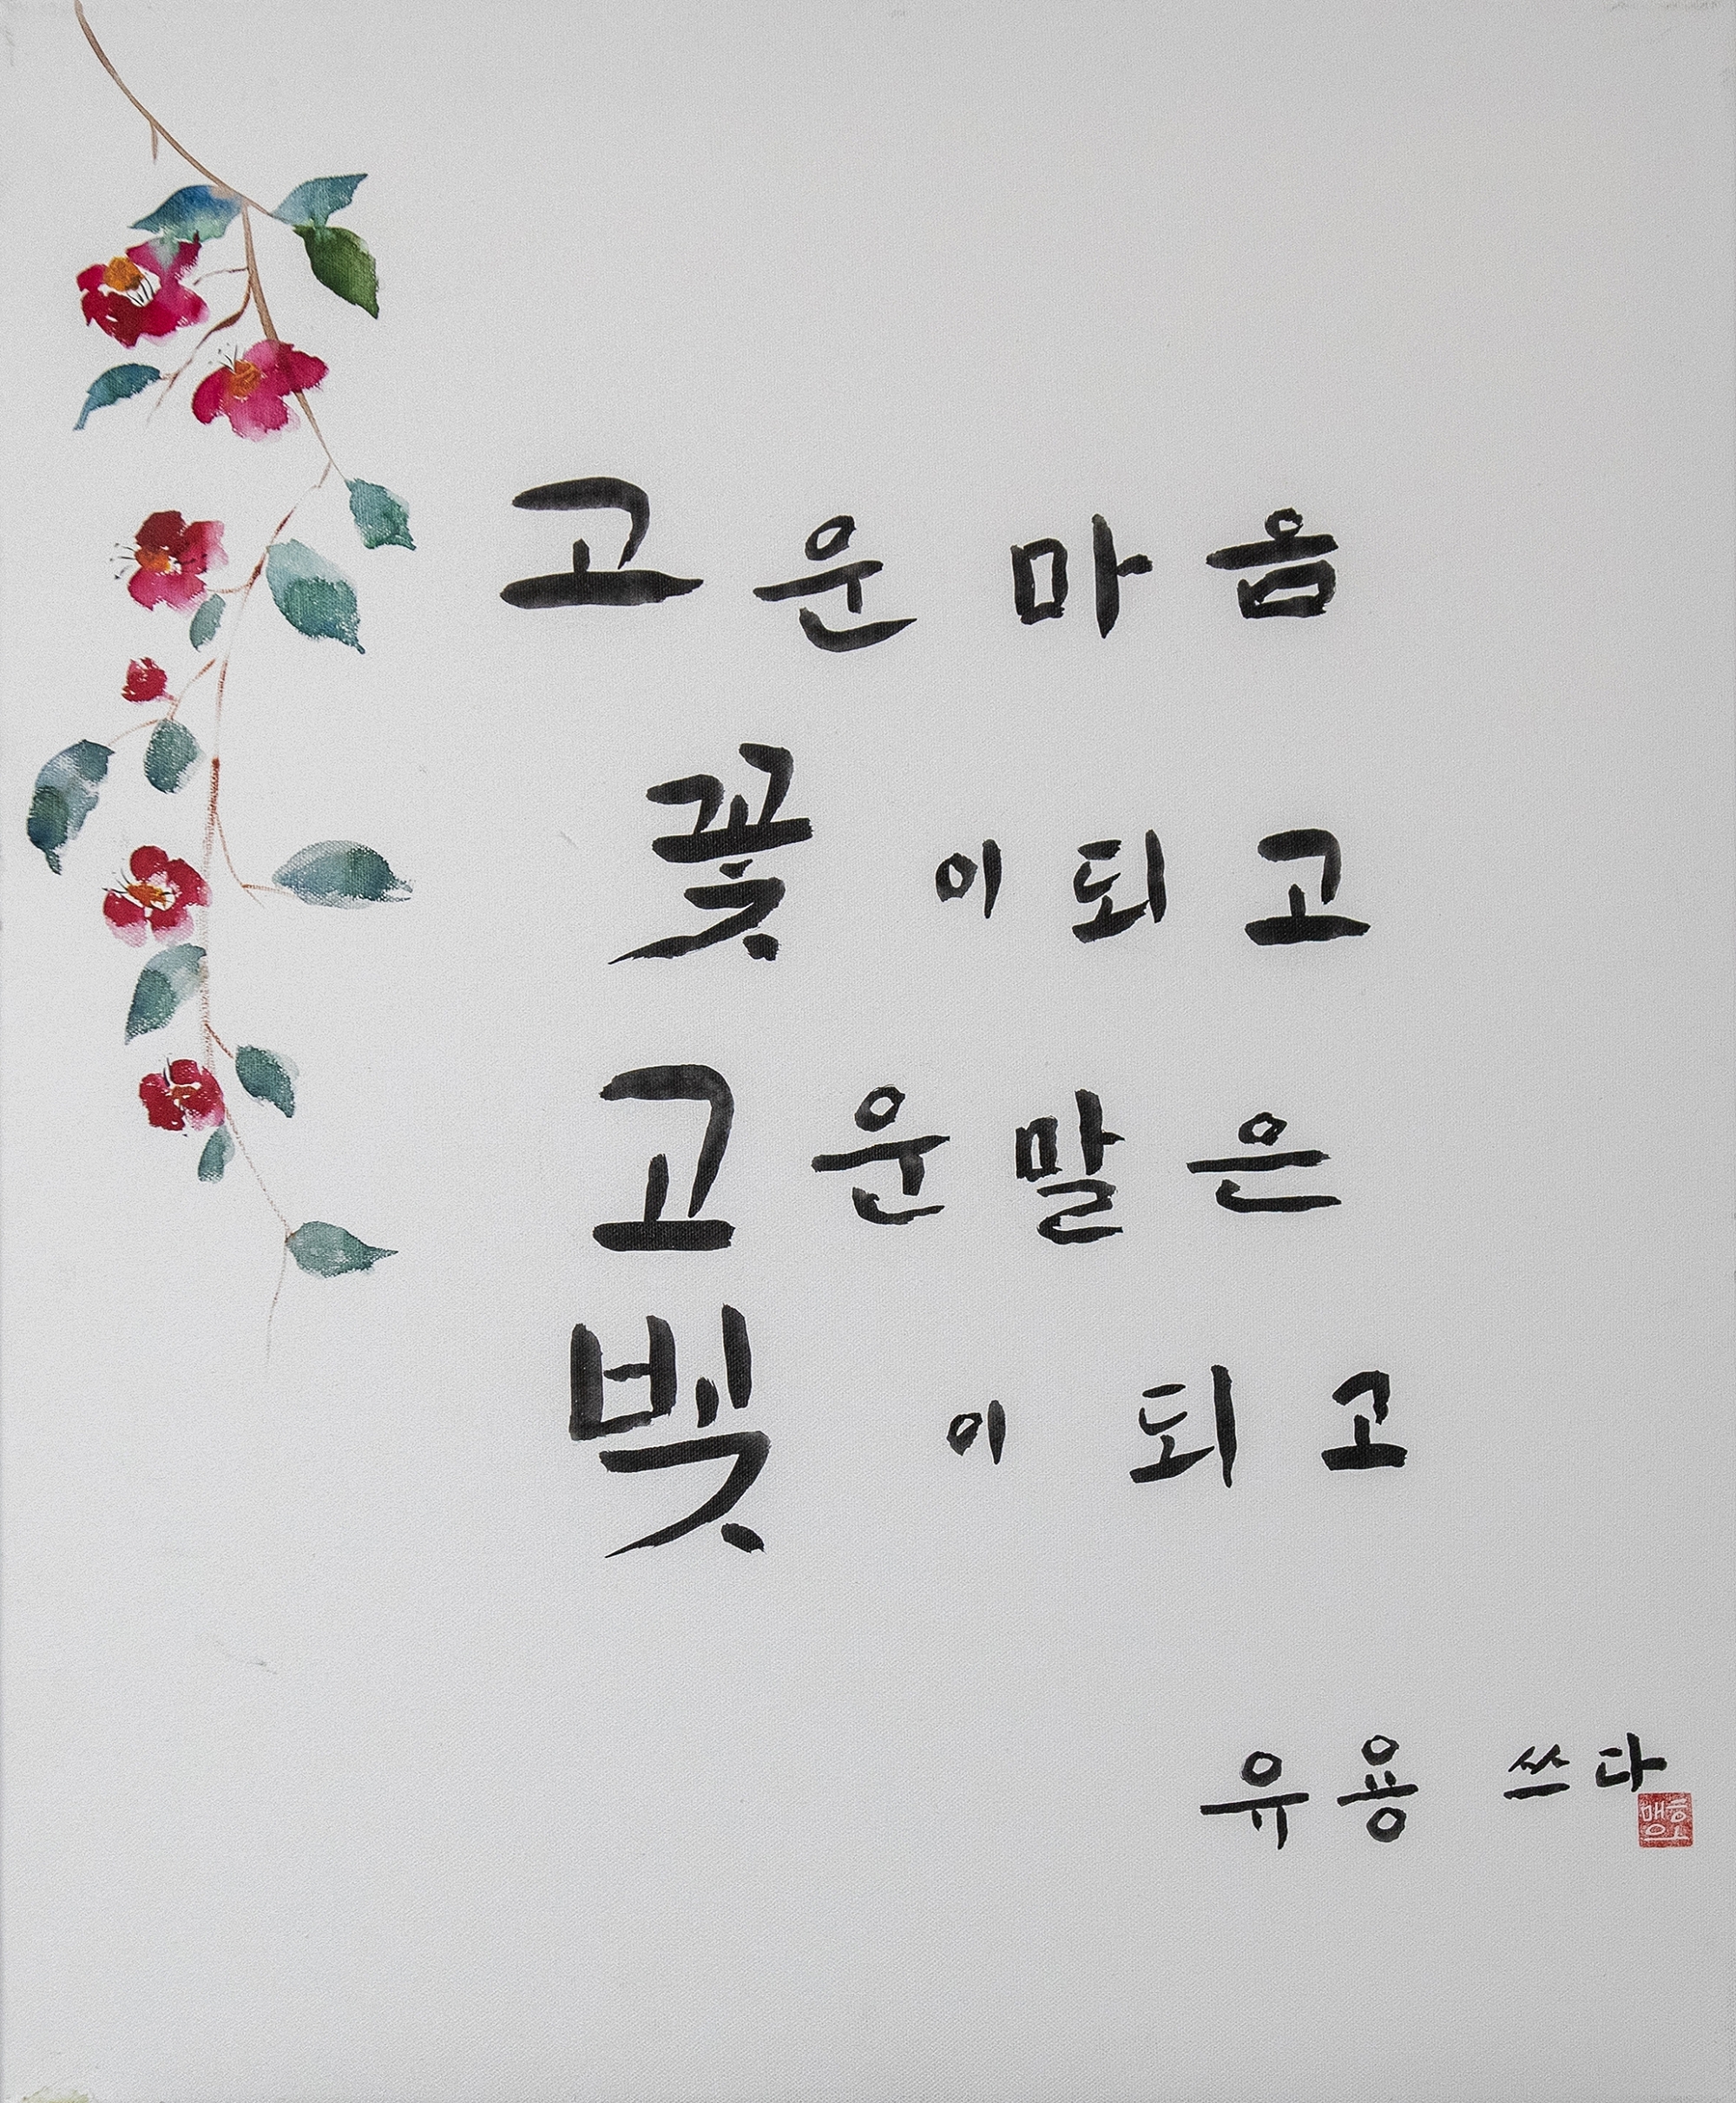 고운 마음
꽃이되고
고운말은
빛이 되고
유용 쓰다